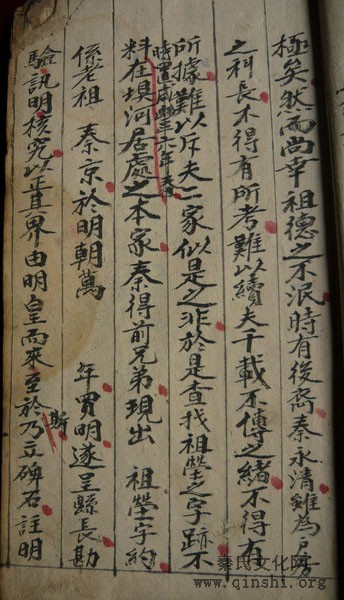 極矣然而尚幸祖德之不泯時有後裔秦永清雖為戶房
之科長不得有所考難以續夫千載不傳之緒不得有
所據難以斥夫二家似是之非於是查找祖塋之字跡不
時置咸豐三六年天
料在埧河居處之本家秦得前兄弟現出 祖塋字約
係老祖 秦京於明朝萬 年買明遂呈縣長勘
驗訊明核究以豈界由明皇而來至於乃立碑石註明
斯
秦氏文化网
www.qinshi.org